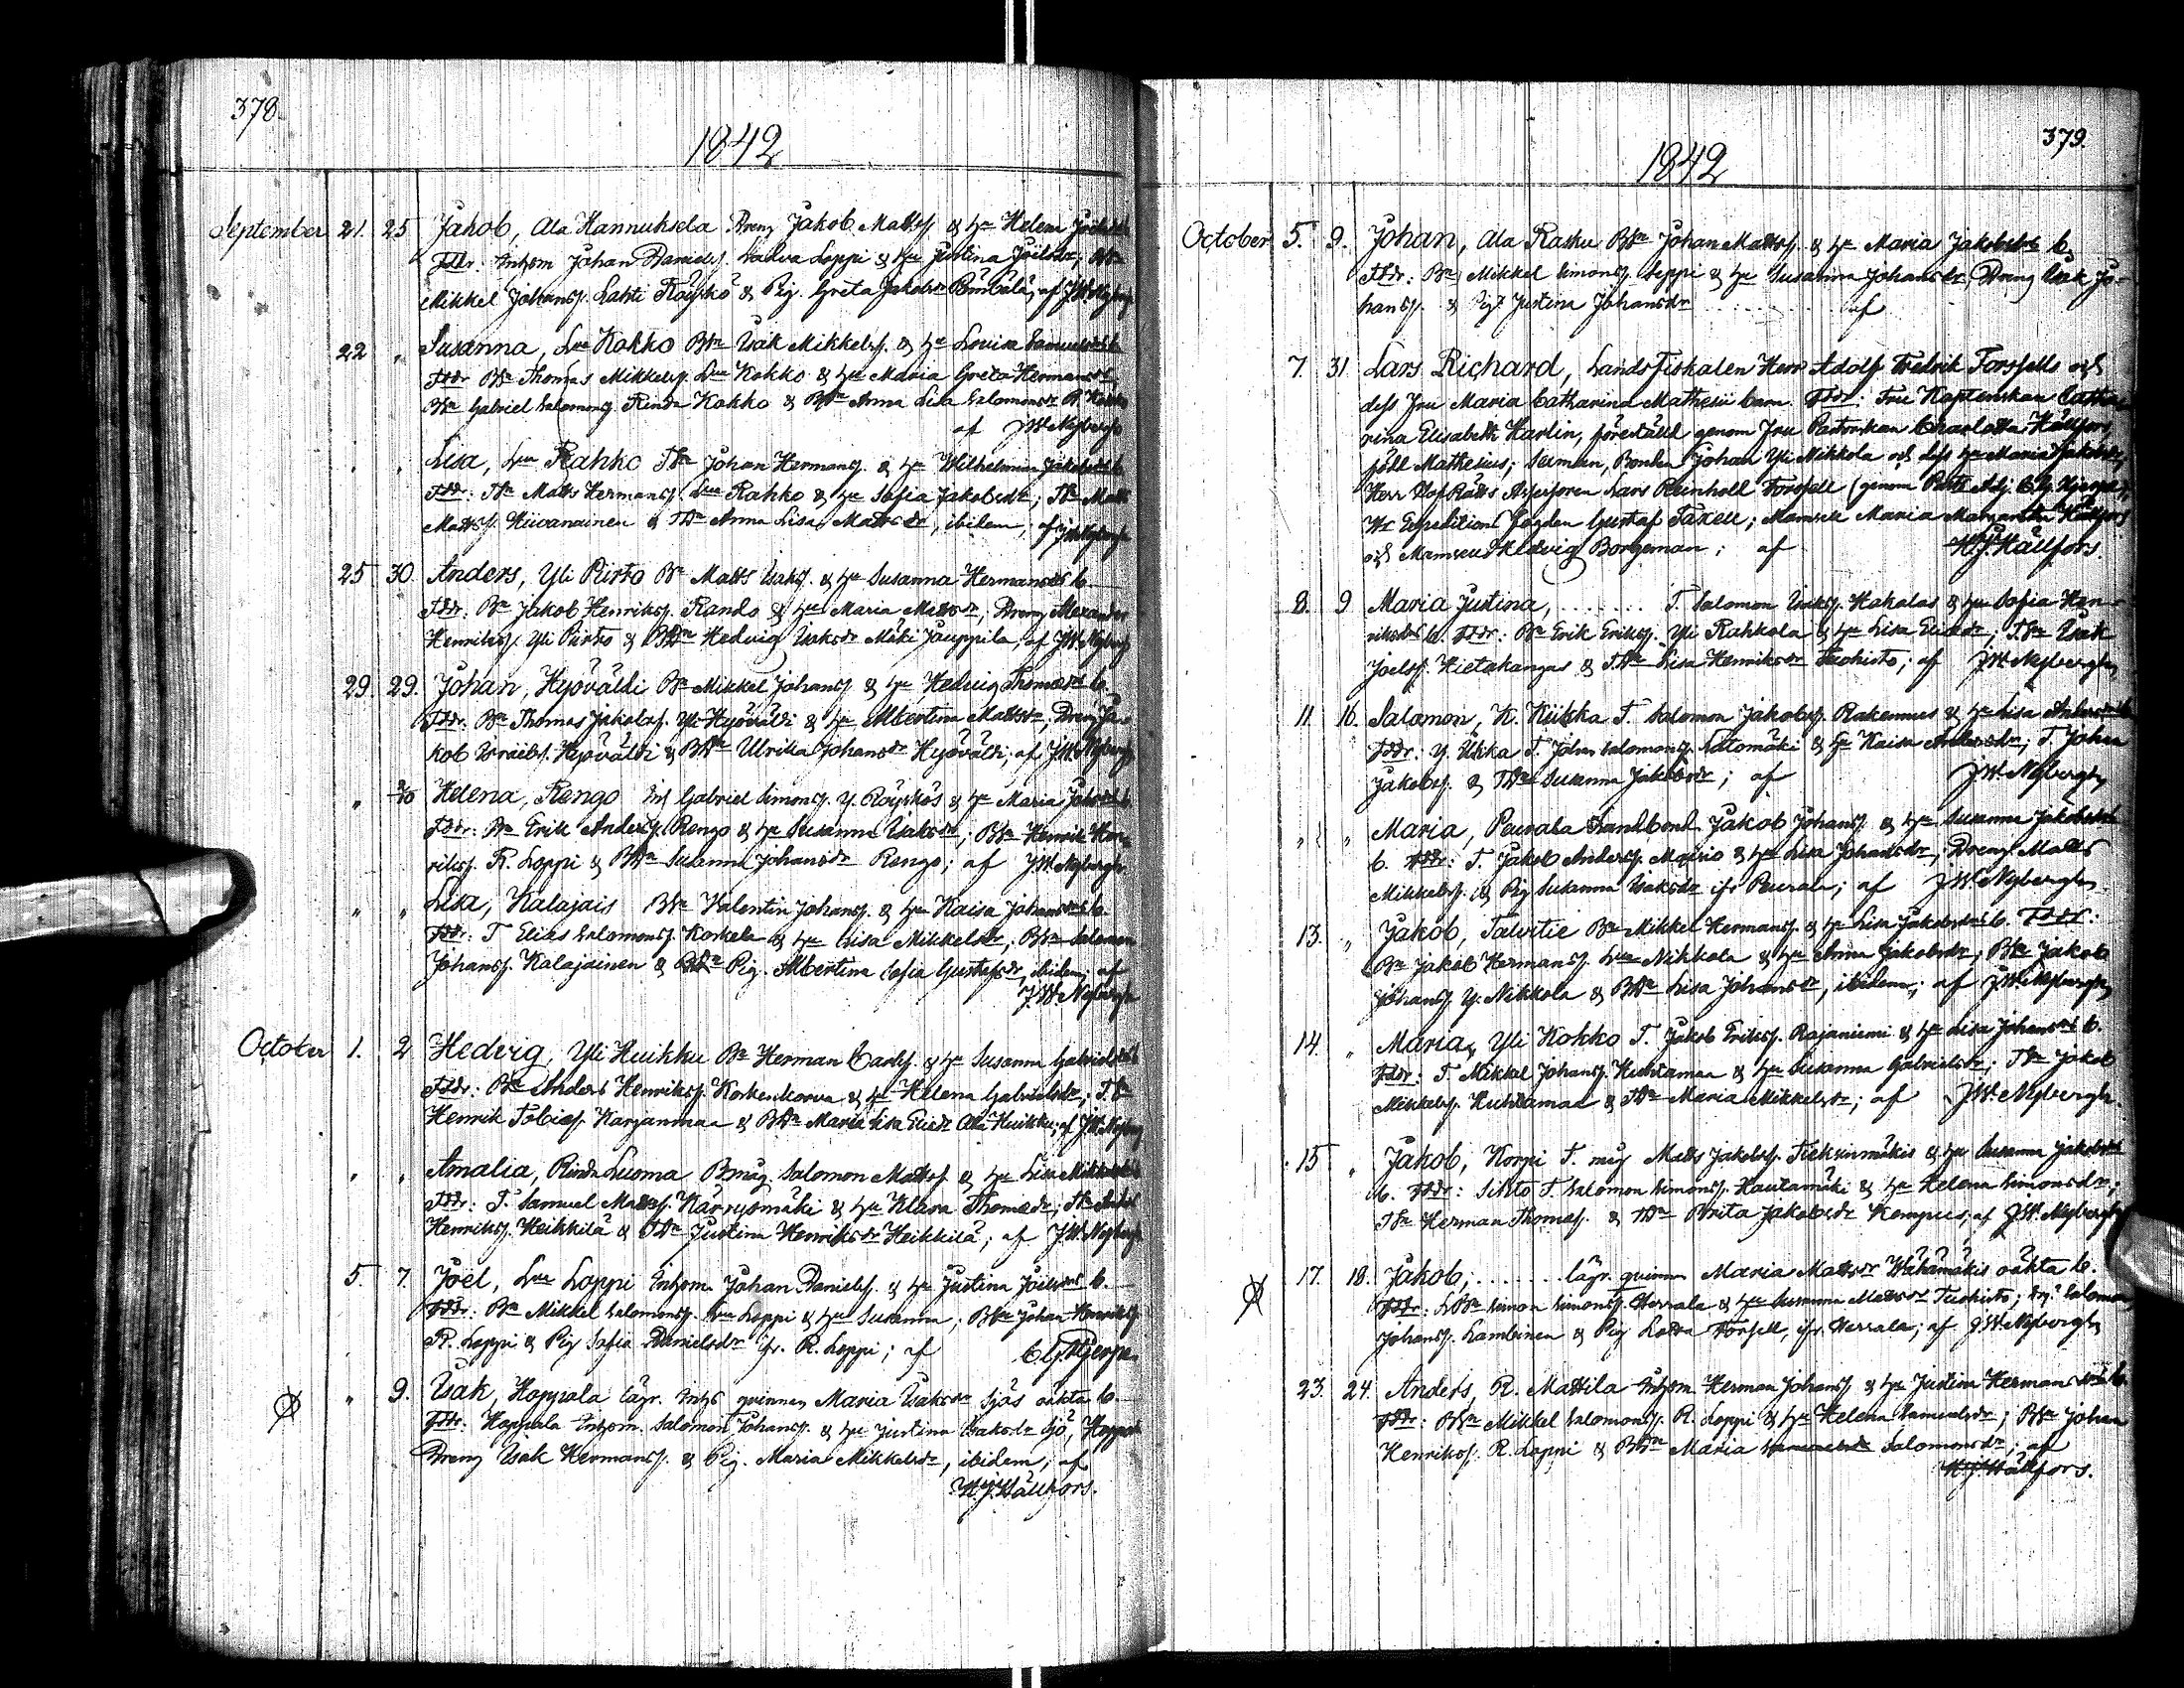 378
1842
September 21. 25 Jakob, Ala Hannuksela Dreng Jakob Mattss. & hu Helena
Fddr: Inhysm Johan Daniels. Loppi & hu Justina Joelsdr;
Mikkel Johanss. Lahti Röyskö & Pig. Greta Jakobsdr af JWNybergh
22 " Susanna, Lua Kokko BSn Isak Mikkelss. & hu Lovisa
Fddr BSn Thomas Mikkelss. Lua Kokko & hu Maria Greta Hermansdr
BSn Gabriel Salomonss. Rinda Kokko & BDr Anna Lisa Salomonsdr R. Kokko
af JWNybergh
" " Lisa, Lua Rahko TSn Johan Hermanss. & hu Wilhelmina Jakobsdrs b.
Fddr: TSn Matts Hermanss. Lua Rahko & hu Sofia Jakobsdr; TSn Matts
Mattss. Hiivanainen & TDr Anna Lisa Mattsdr, ibidem; af JWNybergh
25 30. Anders, Yli Pirto Bn Matts Isakss. & hu Susanna Hermansdrs b.
Fddr: Bn Jakob Henrikss. Rando & hu Maria Mattsdr; Dreng Alexander
Henrikss. Yli Pirto & BDr Hedvig Isaksdr Mäki Jauppila; af JW.Nybergh
29. 29. Johan, Hyöväldi Bn Mikkel Johanss. & hu Hedvig Thomasdrs b.
Fddr. Bn Thomas Jakobss. Yli Hyöväldi & hu Albertina Mattsdr; Dreng Ja-
kob Israelss. Hyöväldi & BDr Ulrika Johansdr Hyöväldi; af J.W.Nybergh
" 2/10 Helena, Rengo Inh Gabriel Simonss. Y. Röyskös & hu Maria b.
Fddr: Bn Erik Anderss. Rengo & hu Susanna Isaksdr; BSn Henrik Hen-
rikss. R. Loppi & BDr Susanna Johansdr Rengo; af J.W.Nybergh
" " Lisa, Kalajais BSn Valentin Johanss. & hu Kaisa Johansdrs b.
Fddr: T Elias Salomonss. Korkela & hu Lisa Mikkelsdr; BSn Salomon
Johanss. Kalajainen & Pig. Albertina Sofia Gustafsdr, ibidem; af
J.W.Nybergh
October 1. 2 Hedvig, Yli Huikku Bn Herman Carlss. & hu Susanna Gabrielsdrs b
Fddr: Bn Anders Henrikss. Korkenkorva & hu Helena Gabrielsdr; TSn
Henrik Tobiass. Karjanmaa & BDr Maria Lisa Eliedr Ala Huikku; af J.W.Nybergh
" " Amalia, Rinda Luoma Bmåg. Salomon Mattss. & hu Lisa Mikkelsdrs b
Fddr: T. Samuel Mattss. Kärrysmäki & hu Klara Thomasdr; TSn
Henrikss. Heikkilä & TDr Justina Henriksdr Heikkilä; af J.W.Nybergh
5. 7. Joel, Lua Loppi Inhysm. Johan Danielss. & hu Justina Joelsdrs b.
Fddr: Bn Mikkel Salomonss. Lua Loppi & hu Susanna; BSn Johan Henrikss.
R. Loppi & Pig Sofia Danielsdr ifr. R. Loppi; af C.G.Hjerpe
" 9. Isak, Hoppala lägr. Inhs quinnan Maria Isaksdr Sjös oäkta b.
Fddr. Hoppala Inhysm. Salomon Johanss. & hu Justina Isaksdr Sjö, Hoppala
Dreng Isak Hermanss. & Pig. Maria Mikkelsdr, ibidem; af
H.J.Hällfors.
379.
1842
October 5. 9. Johan, Ala Rasku BSn Johan Mattss. & hu Maria Jakobsdrs b.
Fddr: Bn Mikkel Simonss. Seppi & hu Susanna Johansdr; Dreng Isak Jo-
hanss. & Pig. Justina Johansdr . . . . . af
7. 31. Lars Richard, Landsfiskalen Herr Adolf Fredrik Forsfells och
dess Fru Maria Catharina Mathesii barn. Fddr: Fru Kaptenskan Catha-
rina Elisabeth Harlin, förestäld genom Fru Pastorskan Charlotta Hällfors,
född Mathesius; Bonden Johan Yli Mikkola och dess hu Maria Jakobsdr;
Herr HofRätts Assessoren Lars Reinhold Forsfell (genom Past: Adj. C.G. Hjerpe);
Hr Expeditions fogden Gustaf Taxell; Mamsell Maria Margaretha Hällfors
och Mamsell Hedvig Borgeman; af H.J.Hällfors
8. 9 Maria Justina, . . . . . . T. Salomon Isakss. Hakalas & hu Sofia Hen-
riksdrs b. Fddr: Bn Erik Erikss. Yli Rahkola & hu Lisa Eliedr; TSn Isak
Joelss. Hietakangas & TDr Lisa Henriksdr Tuohisto; af J.W.Nybergh
11. 16. Salomon, K. Kiikka T. Salomon Jakobss. Rakennus & hu Lisa Andersdrs b.
Fddr: Y. Ukka T. Johan Salomonss. Latomäki & hu Kaisa Andersdr; T. Johan
Jakobss. & TDr Susanna Jakobsdr; af J.W.Nybergh
" " Maria, Peurala Landbond. Jakob Johanss. & hu Susanna Jakobsdrs
b. Fddr: T. Jakob Anderss. & hu Lisa Johansdr; Dreng Matts
Mikkelss. & Pig Susanna Isaksdr ifr Peurala; af J.W.Nybergh
13. " Jakob, Talvitie Bn Mikkel Hermanss. & hu Lisa Jakobsdrs b. Fddr:
Bn Jakob Hermanss. Lua Nikkola & hu Anna Jakobsdr; BSn Jakob
Johanss. Y. Nikkola & BDr Lisa Johansdr, ibidem; af J.W.Nybergh
14. " Maria, Yli Kokko T. Jakob Erikss. Rajaniemi & hu Lisa Johansdrs b.
Fddr: T. Mikkel Johanss. Huhtamaa & hu Susanna Gabrielsdr; TSn Jakob
Mikkelss. Huhtamaa & TDr Maria Mikkelsdr; af J.W.Nybergh.
15 " Jakob, Korpi T. måg Matts Jakobss. & hu Susanna Jakobsdrs
b. Fddr: T. Salomon Simonss. Hautamäki & hu Helena Simonsdr;
TSn Herman Thomass. & TDr Brita Jakobsdr Kempus; af J.W.Nybergh
17. 18. Jakob; . . . . . lägr. quinnan Maria Mattsdr Wähämäkis oäkta b.
Fddr: LBn Simon Simonss. Herrala & hu Susanna Mattsdr Tuohisto; Salomon
Johanss. Lambinen & Pig Lotta Forsell, ifr. Herrala; af J.W.Nybergh
23. 24. Anders, R. Mattila Inhysm. Herman Johanss. & hu Justina Hermansdrs b.
Fddr: BSn Mikkel Salomonss. R. Loppi & hu Helena Samuelsdr; BSn Johan
Henrikss. R. Loppi & BDr Maria Salomonsdr; af
H.J.Hällfors.